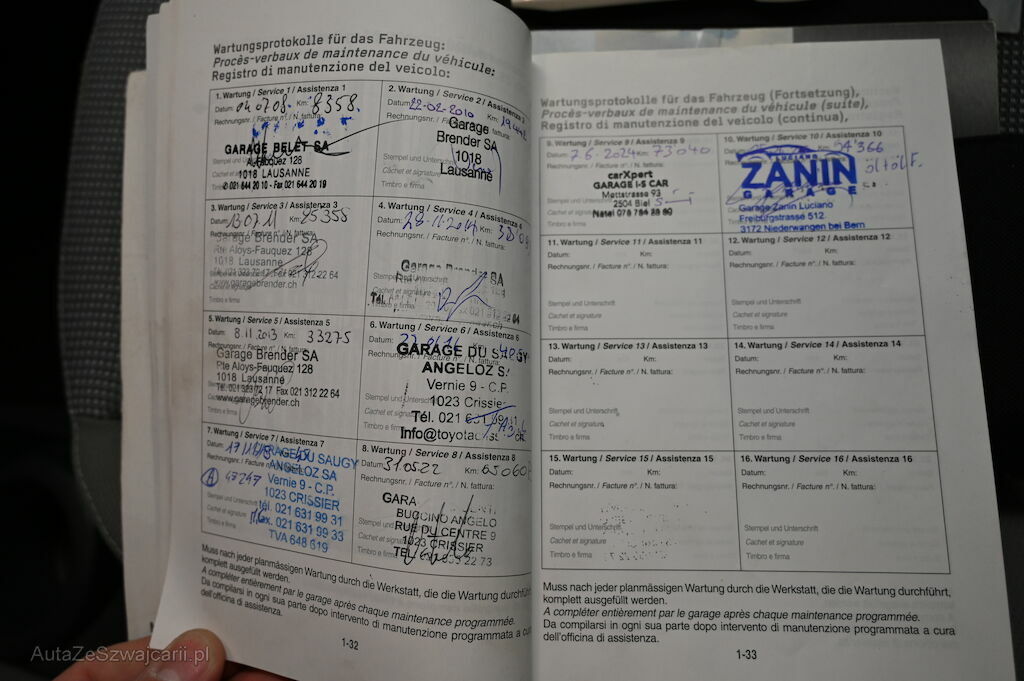 Wartungsprotokolle für das Fahrzeug:
Procès-verbaux de maintenance du véhicule:
Registro di manutenzione del veicolo:
1. Wartung / Service 1 / Assistenza 1
Datum: 04 07 08. Km: 8358.
Rechnungsnr. / Facture n°. / N. fattura:
GARAGE BELET SA
Al. Fauquez 128
1018 LAUSANNE
✆ 021 644 20 10 - Fax 021 644 20 19
Timbro e firma
2. Wartung / Service 2 / Assistenza 2
Datum: 22-02-2010 Km:
Rechnungsnr. / Facture n°. / N. fattura:
Garage
Brender SA
1018
Lausanne
Stempel und Unterschrift
Cachet et signature
Timbro e firma
3. Wartung / Service 3 / Assistenza 3
Datum: Km:
Rechnungsnr. / Facture n°. / N. fattura:
Garage Brender SA
Rte Aloys-Fauquez 128
1018 Lausanne
Fax 021 312 22 64
www.garagebrender.ch
Timbro e firma
4. Wartung / Service 4 / Assistenza 4
Datum: Km:
Rechnungsnr. / Facture n°. / N. fattura:
Garage Brender SA
Tél.
5. Wartung / Service 5 / Assistenza 5
Datum: 8.11.2013 Km: 33275
Rechnungsnr. / Facture n°. / N. fattura:
Garage Brender SA
Rte Aloys-Fauquez 128
1018 Lausanne
Fax 021 312 22 64
www.garagebrender.ch
Timbro e firma
6. Wartung / Service 6 / Assistenza 6
Datum: Km:
Rechnungsnr. / Facture n°. / N. fattura:
GARAGE DU SAUGY
ANGELOZ S.
Vernie 9 - C.P.
1023 Crissier
Tél. 021
7. Wartung / Service 7 / Assistenza 7
Datum: Km:
Rechnungsnr. / Facture
GARAGE DU SAUGY
ANGELOZ SA
Vernie 9 - C.P.
1023 CRISSIER
tél. 021 631 99 31
Fax. 021 631 99 33
TVA 648 619
Timbro e firma
8. Wartung / Service 8 / Assistenza 8
Datum: 31.05.22 Km:
Rechnungsnr. / Facture n°. / N. fattura:
GARA
BUCCINO ANGELO
RUE DU CENTRE 9
1023 CRISSIER
Muss nach jeder planmässigen Wartung durch die Werkstatt, die die Wartung durchführt,
komplett ausgefüllt werden.
A compléter entièrement par le garage après chaque maintenance programmée.
Da compilarsi in ogni sua parte dopo intervento di manutenzione programmata a cura
dell'officina di assistenza.
1-32
Wartungsprotokolle für das Fahrzeug (Fortsetzung),
Procès-verbaux de maintenance du véhicule (suite),
Registro di manutenzione del veicolo (continua),
9. Wartung / Service 9 / Assistenza 9
Datum: 7.6.2024 Km: 73040
Rechnungsnr. / Facture n°. / N. fattura:
carXpert
GARAGE I-S CAR
Mettstrasse 93
2504 Biel
Natel 078 784 28 80
Timbro e firma
10. Wartung / Service 10 / Assistenza 10
LUCIANO
ZANIN
GARAGE
Garage Zanin Luciano
Freiburgstrasse 512
3172 Niederwangen bei Bern
11. Wartung / Service 11 / Assistenza 11
Datum: Km:
Rechnungsnr. / Facture n°. / N. fattura:
Stempel und Unterschrift
Cachet et signature
Timbro e firma
12. Wartung / Service 12 / Assistenza 12
Datum: Km:
Rechnungsnr. / Facture n°. / N. fattura:
Stempel und Unterschrift
Cachet et signature
Timbro e firma
13. Wartung / Service 13 / Assistenza 13
Datum: Km:
Rechnungsnr. / Facture n°. / N. fattura:
Stempel und Unterschrift
Cachet et signature
Timbro e firma
14. Wartung / Service 14 / Assistenza 14
Datum: Km:
Rechnungsnr. / Facture n°. / N. fattura:
Stempel und Unterschrift
Cachet et signature
Timbro e firma
15. Wartung / Service 15 / Assistenza 15
Datum: Km:
Rechnungsnr. / Facture n°. / N. fattura:
Stempel und Unterschrift
Cachet et signature
Timbro e firma
16. Wartung / Service 16 / Assistenza 16
Datum: Km:
Rechnungsnr. / Facture n°. / N. fattura:
Stempel und Unterschrift
Cachet et signature
Timbro e firma
Muss nach jeder planmässigen Wartung durch die Werkstatt, die die Wartung durchführt,
komplett ausgefüllt werden.
A compléter entièrement par le garage après chaque maintenance programmée.
Da compilarsi in ogni sua parte dopo intervento di manutenzione programmata a cura
dell'officina di assistenza.
1-33
AutaZeSzwajcarii.pl